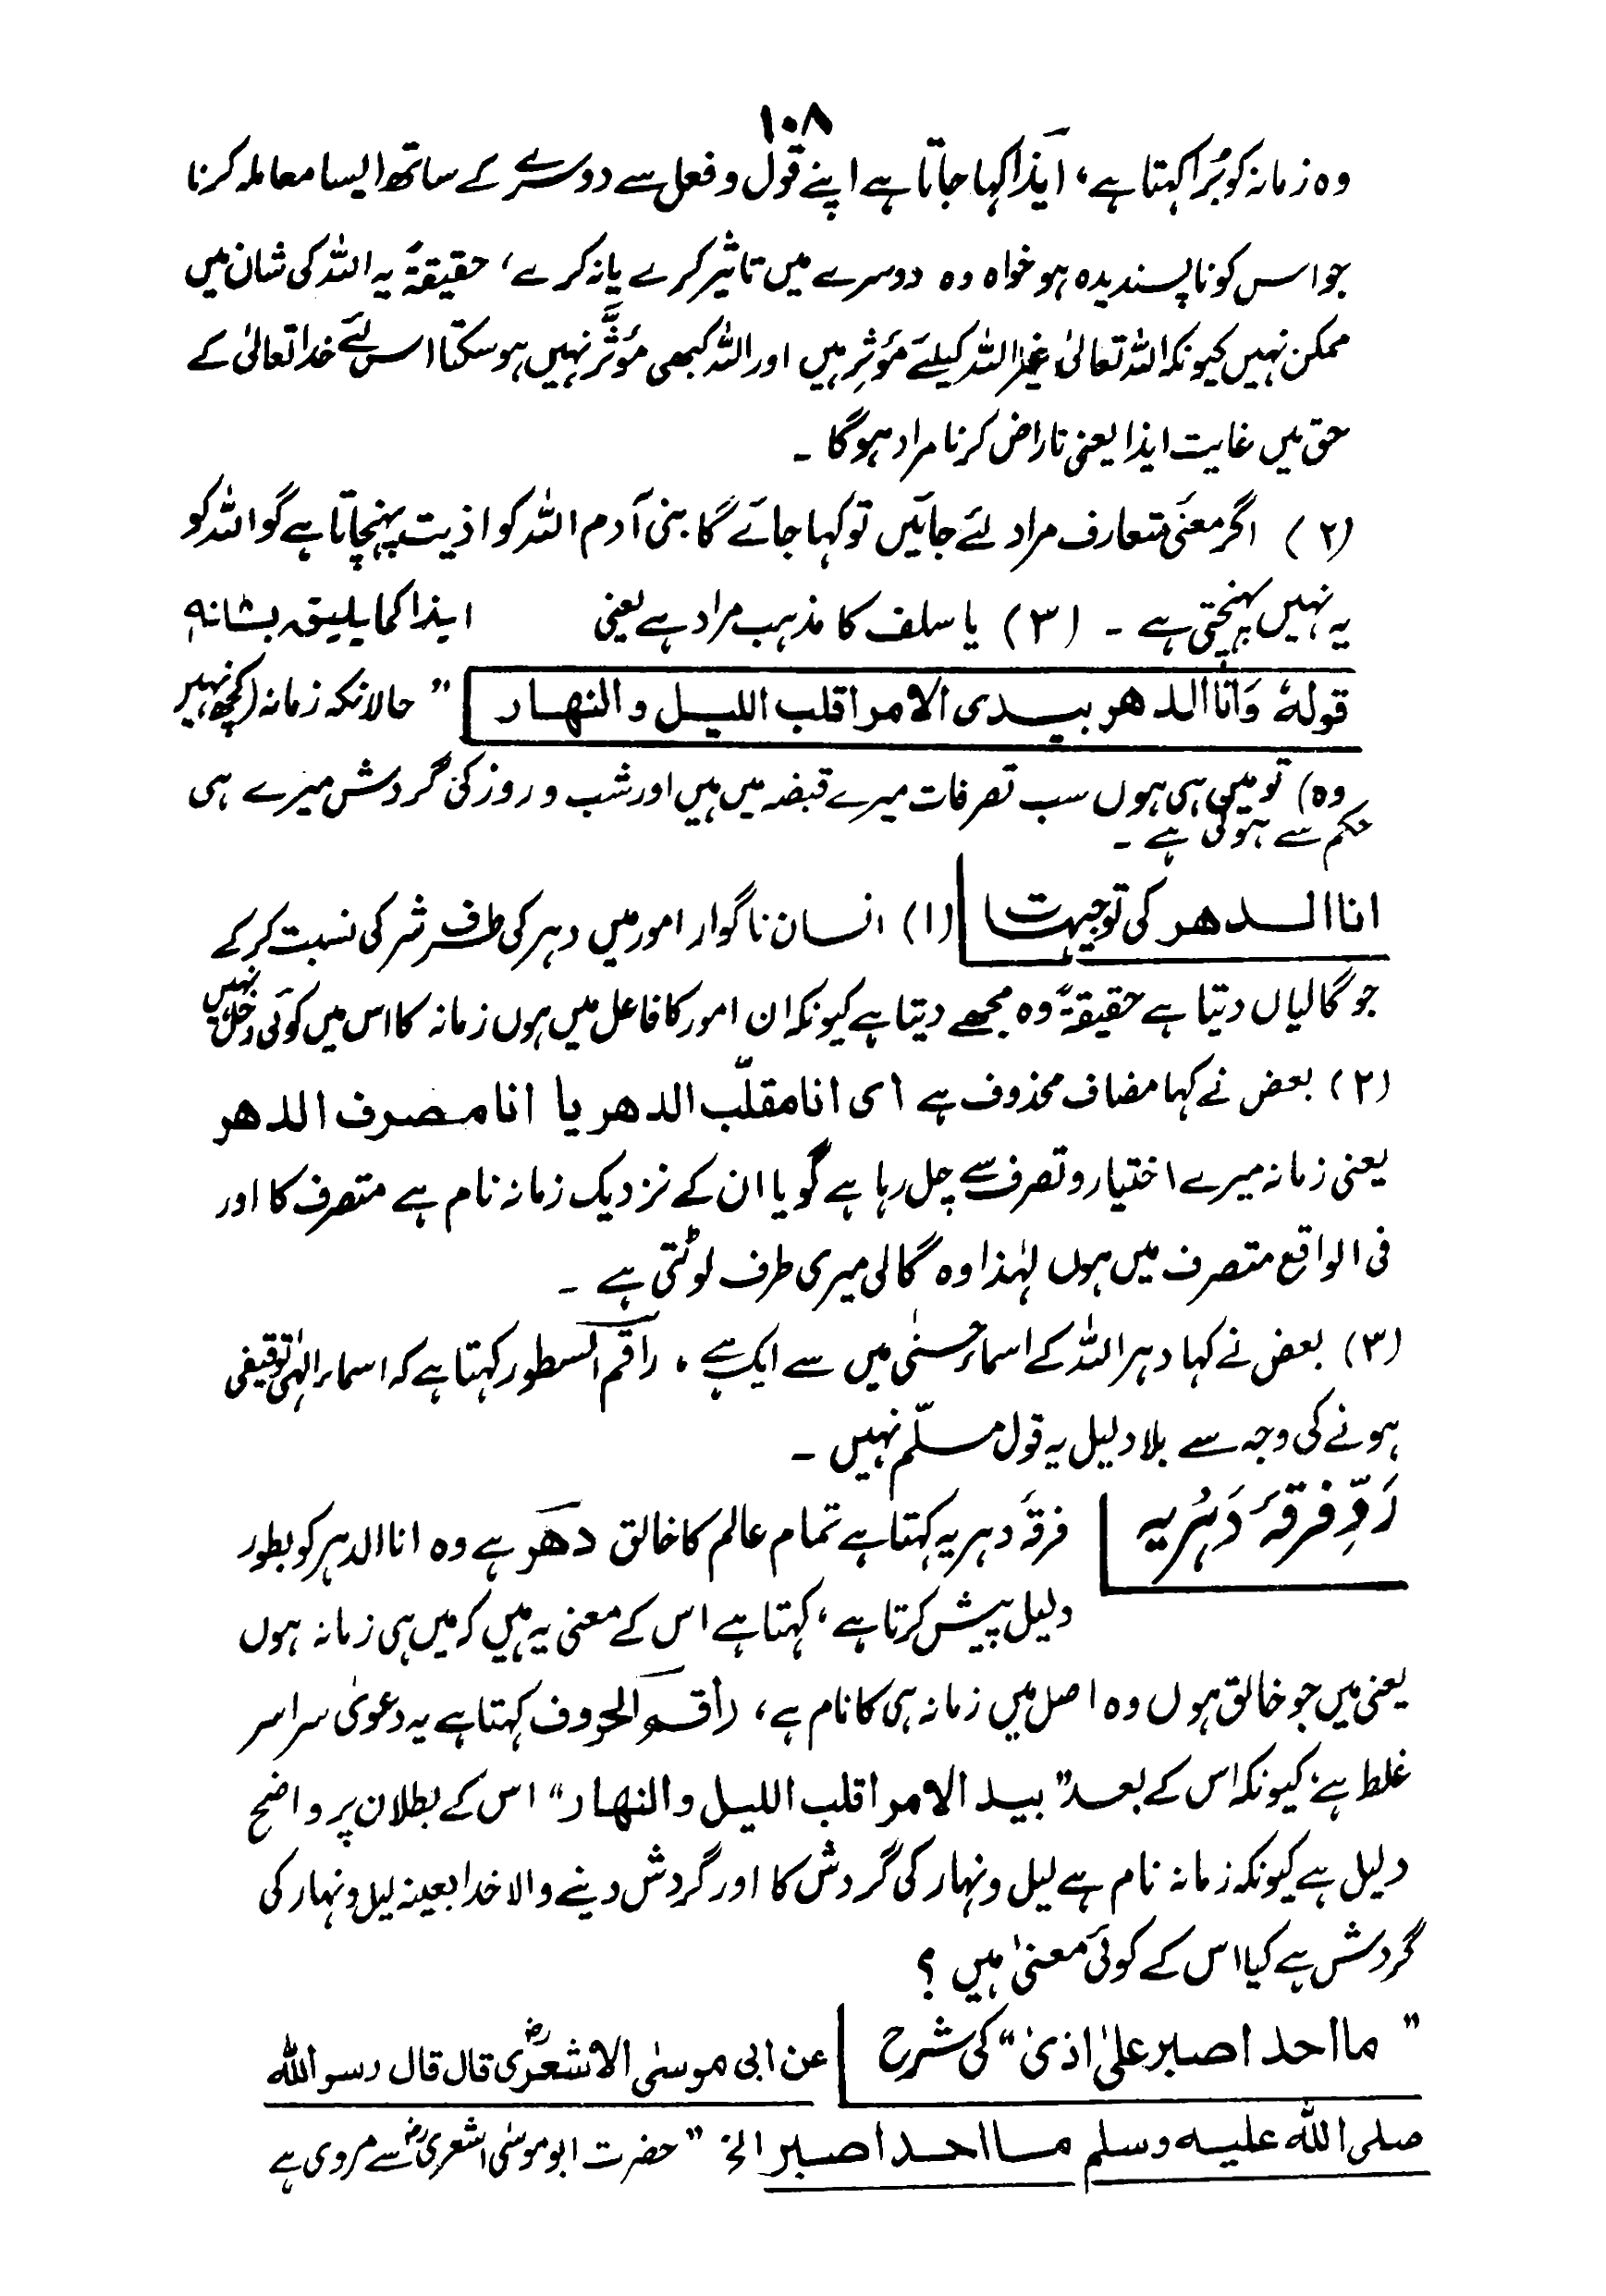 ۱۰۸
وہ زمانہ کو بُرا کہتا ہے، ایذا کہا جاتا ہے اپنے قول و فعل سے دوسرے کے ساتھ ایسا معاملہ کرنا
جو اس کو ناپسندیدہ ہو خواہ وہ دوسرے میں تاثیر کرے یا نہ کرے، حقیقۃً یہ اللہ کی شان میں
ممکن نہیں کیونکہ اللہ تعالیٰ غیر اللہ کیلئے مؤثِر ہیں اور اللہ کبھی مُؤثَّر نہیں ہو سکتا اس لئے خدا تعالیٰ کے
حق میں غایت ایذا یعنی ناراض کرنا مراد ہوگا ۔
(۲) اگر معنیٔ متعارف مراد لئے جائیں تو کہا جائے گا بنی آدم اللہ کو اذیت پہنچاتا ہے گو اللہ کو
یہ نہیں پہنچتی ہے ۔ (۳) یا سلف کا مذہب مراد ہے یعنی ایذا کما یلیق بشانہ
قولہٗ وَانا الدھر بیدی الامر اقلب اللیل والنھار " حالانکہ زمانہ (کچھ نہیں
وہ) تو میں ہی ہوں سب تصرفات میرے قبضہ میں ہیں اور شب و روز کی گردش میرے ہی
حکم سے ہوتی ہے ۔
انا الدھر کی توجیہات (۱) انسان ناگوار امور میں دہر کی طرف شر کی نسبت کر کے
جو گالیاں دیتا ہے حقیقۃً وہ مجھے دیتا ہے کیونکہ ان امور کا فاعل میں ہوں زمانہ کا اس میں کوئی دخل نہیں
(۲) بعض نے کہا مضاف محذوف ہے ای انا مقلّب الدھر یا انا مصرف الدھر
یعنی زمانہ میرے اختیار و تصرف سے چل رہا ہے گویا ان کے نزدیک زمانہ نام ہے متصرف کا اور
فی الواقع متصرف میں ہوں لہٰذا وہ گالی میری طرف لوٹتی ہے ۔
(۳) بعض نے کہا دہر اللہ کے اسماء حسنیٰ میں سے ایک ہے ، راقم السطور کہتا ہے کہ اسماء الٰہی توقیفی
ہونے کی وجہ سے بلا دلیل یہ قول مسلّم نہیں ۔
رَدِّ فرقہ دَہْریہ فرقہ دہریہ کہتا ہے تمام عالم کا خالق دھر ہے وہ انا الدہر کو بطور
دلیل پیش کرتا ہے، کہتا ہے اس کے معنی یہ ہیں کہ میں ہی زمانہ ہوں
یعنی میں جو خالق ہوں وہ اصل میں زمانہ ہی کا نام ہے، راقم الحروف کہتا ہے یہ دعویٰ سراسر
غلط ہے، کیونکہ اس کے بعد "بید الامر اقلب اللیل والنھار" اس کے بطلان پر واضح
دلیل ہے کیونکہ زمانہ نام ہے لیل و نہار کی گردش کا اور گردش دینے والا خدا بعینہ لیل و نہار کی
گردش ہے کیا اس کے کوئی معنیٰ ہیں ؟
" ما احد اصبر علیٰ اذیٰ " کی شرح عن ابی موسیٰ الاشعریؓ قال قال رسول اللہ
صلی اللہ علیہ وسلم ما احد اصبر الخ " حضرت ابو موسیٰ اشعریؓ سے مروی ہے